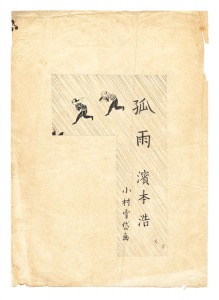 孤雨
濱本浩
小村雪岱画